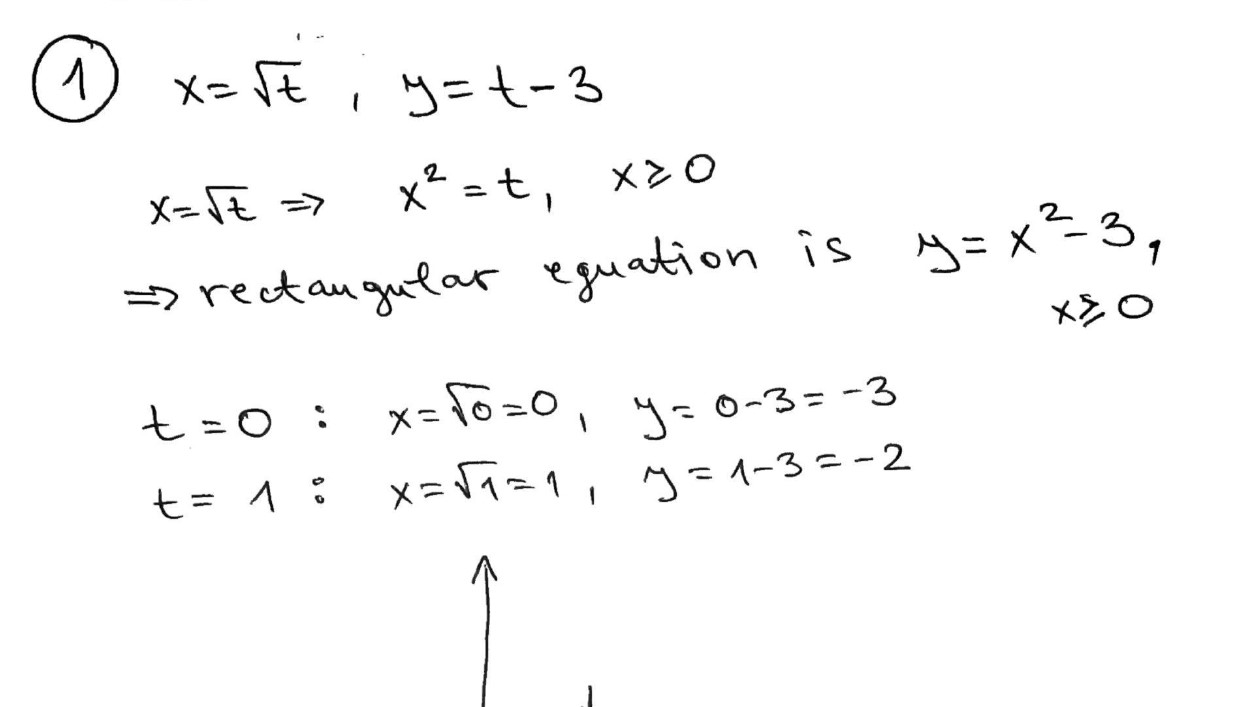 ① x=√t , y=t-3
x=√t ⇒ x²=t, x≥0
⇒ rectangular equation is y=x²-3,
x≥0
t=0 : x=√0=0, y=0-3=-3
t=1 : x=√1=1, y=1-3=-2